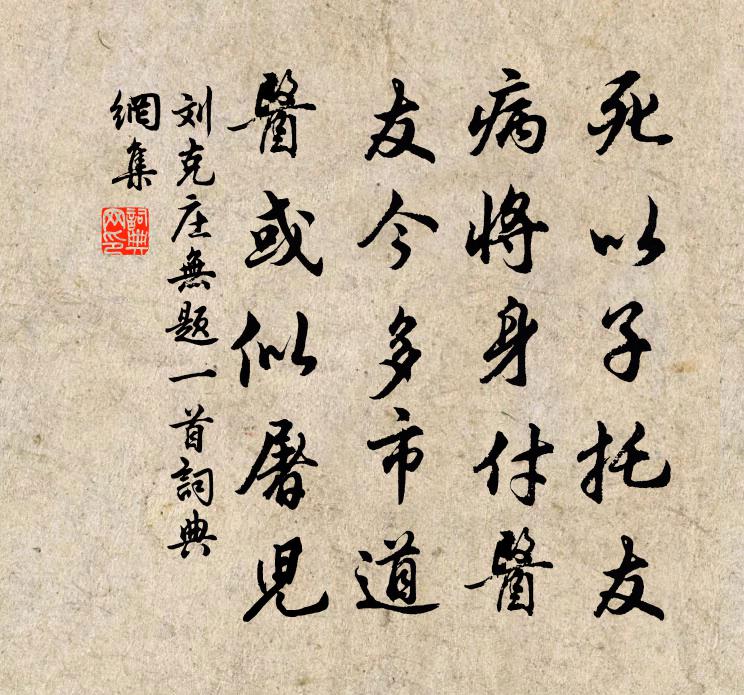 死以子托友
病将身付醫
友今多市道
醫或似屠児
刘克庄無題一首詞典
網集
詞典網印